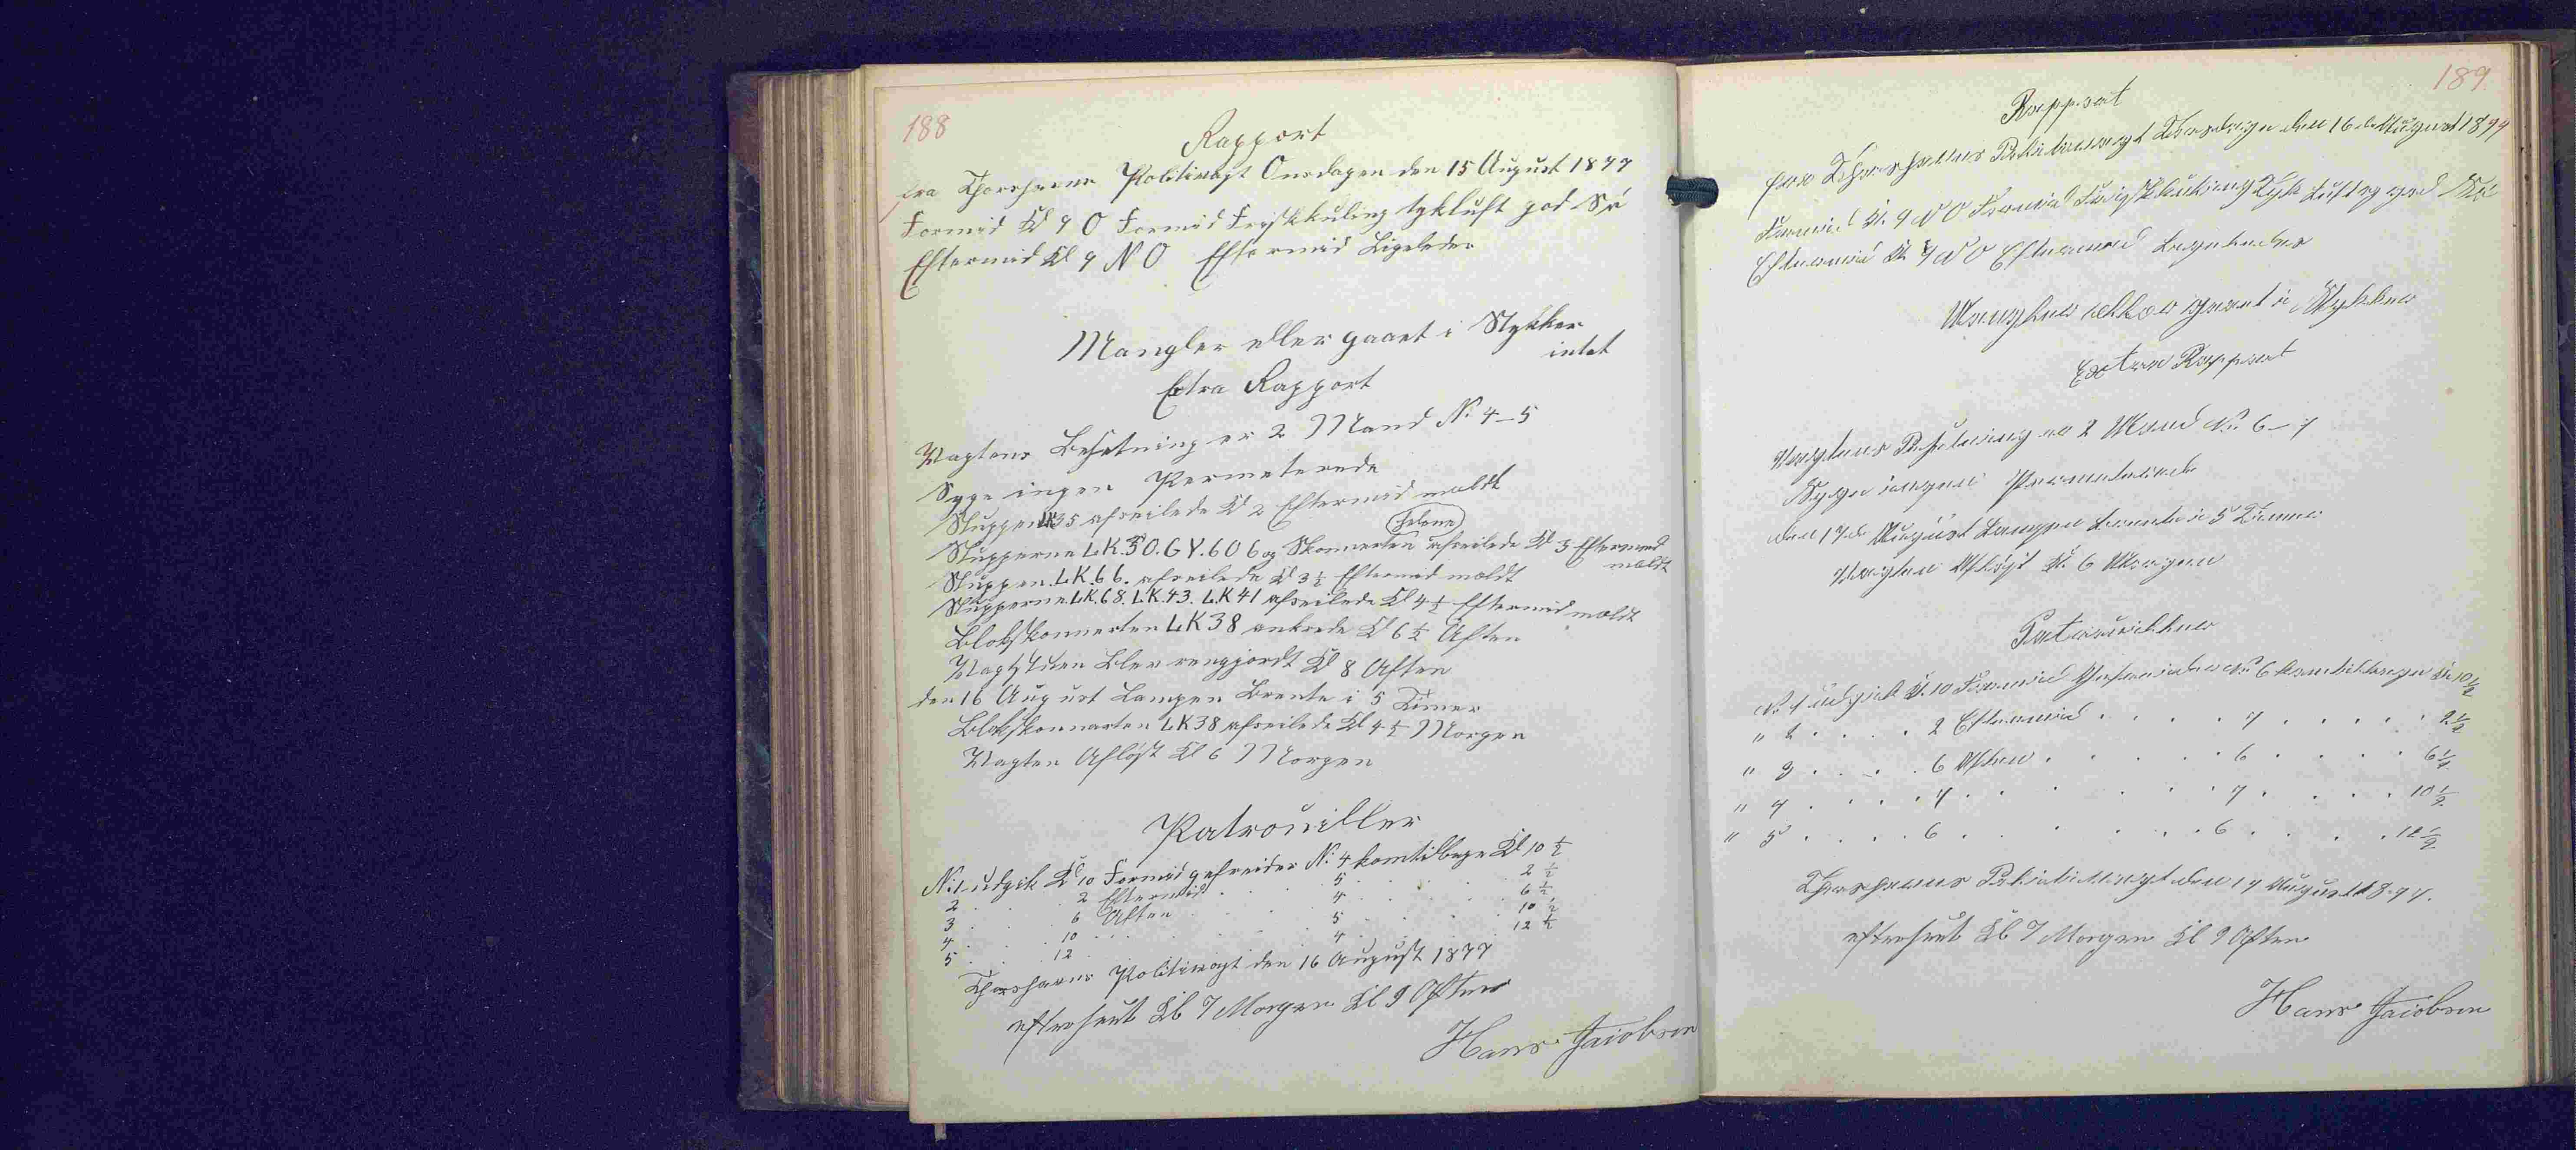 188
Rapport
fra Thorshavns Politivagt Onsdagen den 15 August 1877
Formid Kl 9 O Formid Friskkuling tykluft god Sö
Eftermid Kl 9 NO Eftermid Ligeledes
Mangler eller gaaet i Stykker
intet
Extra Rapport
Vagtens Besetning er 2 Mand No 4-5
Syge ingen Permeterede
Sluppen LK35 afseilede Kl 2 Eftermid meldt
Slupperne LK.50. GY.606 og Skonnerten afseilede Kl 3 Eftermid
meldt
Sluppen LK.66. afseilede Kl 3½ Eftermid meldt
Slupperne LK.68. LK.43. LK41 afseilede Kl 4½ Eftermid meldt
Blokskonnerten LK38 ankrede Kl 6½ Aften
Vagtstuen blev rengjordt Kl 8 Aften
den 16 August Lampen brente i 5 Timer
Blokskonnerten LK38 afseilede Kl 4½ Morgen
Vagten Aflöst Kl 6 Morgen
Patrouiller
No 1 udgik Kl 10 Formid gefreider No 4 kom tilbage Kl 10½
2 . . . 2 Eftermid . . 5 . . . 2½
3 . . . 6 Aften . . 4 . . . 6½
4 . . . 10 . . . 5 . . . 10½
5 . . . 12 . . . 4 . . . 12½
Thorshavns Politivagt den 16 August 1877
efterseet Kl 7 Morgen Kl 9 Aften
Hans Jacobsen
189
Rapport
fra Thorshavns Politivagt Thorsdagen den 16de August 1877
Formid Kl. 9 NO Formid Friskkuling Tyk Luft og god Sö
Eftermid Kl 9 NO Eftermid Ligeledes
Mangler eller gaaet i Stykker
Extra Rapport
Vagtens Besetning er 2 Mand No 6-7
Syge ingen Permeterede
den 17de August Lampen brente i 5 Timer
Vagten Aflöst Kl. 6 Morgen
Patrouiller
No 1 udgik Kl. 10 Formid Gefreider No 6 kom tilbage Kl. 10½
" 2 . . . . 2 Eftermid . . . . 7 . . . . . 2½
" 3 . . . . 6 Aften . . . . 6 . . . . 6½
" 4 . . . . . . . . . 7 . . . . 10½
" 5 . . . . . . . . 6 . . . . 12½
Thorshavns Politivagt den 17 August 1877.
efterseet Kl 7 Morgen Kl 9 Aften
Hans Jacobsen